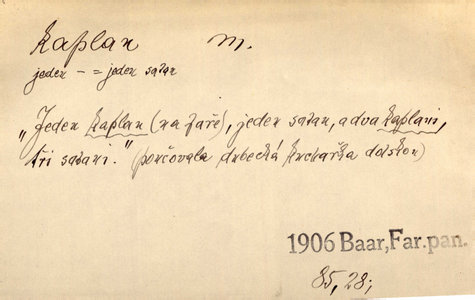 kaplan m.
jeden – = jeden satan
„Jeden kaplan (na faře), jeden satan, a dva kaplani,
tři satani.“ (poučovala dubecká kuchařka
1906 Baar, Far. pan.
85, 28;